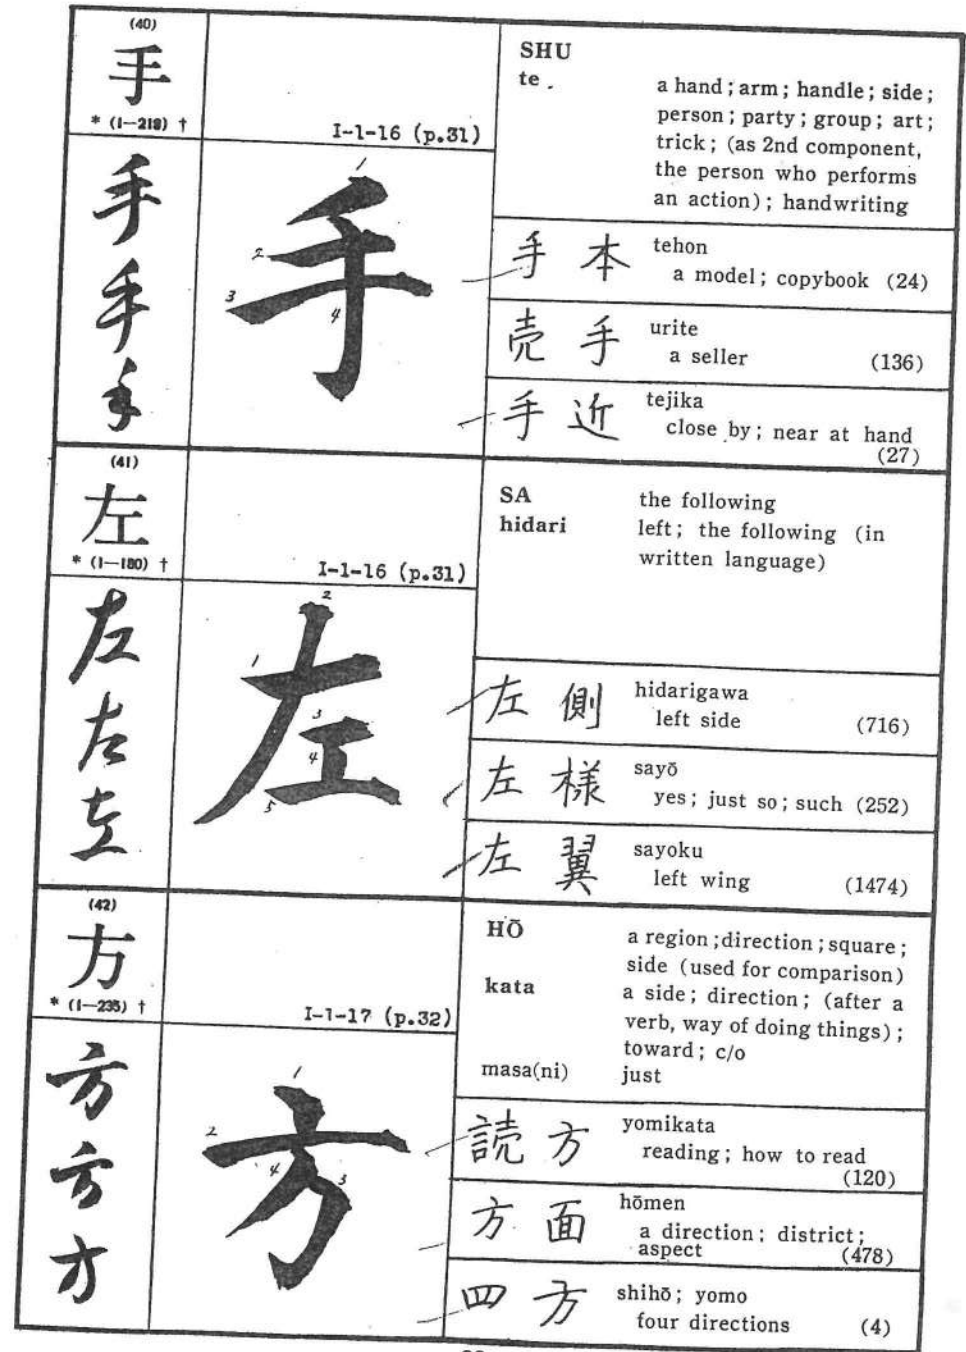 (40)
手
* (1—218) †
I-1-16 (p.31)
手
手
手
1
2
3
4
手
SHU
te
a hand; arm; handle; side;
person; party; group; art;
trick; (as 2nd component,
the person who performs
an action); handwriting
手本
tehon
a model; copybook (24)
売手
urite
a seller (136)
手近
tejika
close by; near at hand
(27)
(41)
左
* (1—180) †
I-1-16 (p.31)
左
左
左
1
2
3
4
5
左
SA the following
hidari left; the following (in
written language)
左側
hidarigawa
left side (716)
左様
sayō
yes; just so; such (252)
左翼
sayoku
left wing (1474)
(42)
方
* (1—235) †
I-1-17 (p.32)
方
方
方
1
2
4
3
方
HŌ a region; direction; square;
side (used for comparison)
kata a side; direction; (after a
verb, way of doing things);
toward; c/o
masa(ni) just
読方
yomikata
reading; how to read
(120)
方面
hōmen
a direction; district;
aspect (478)
四方
shihō; yomo
four directions (4)